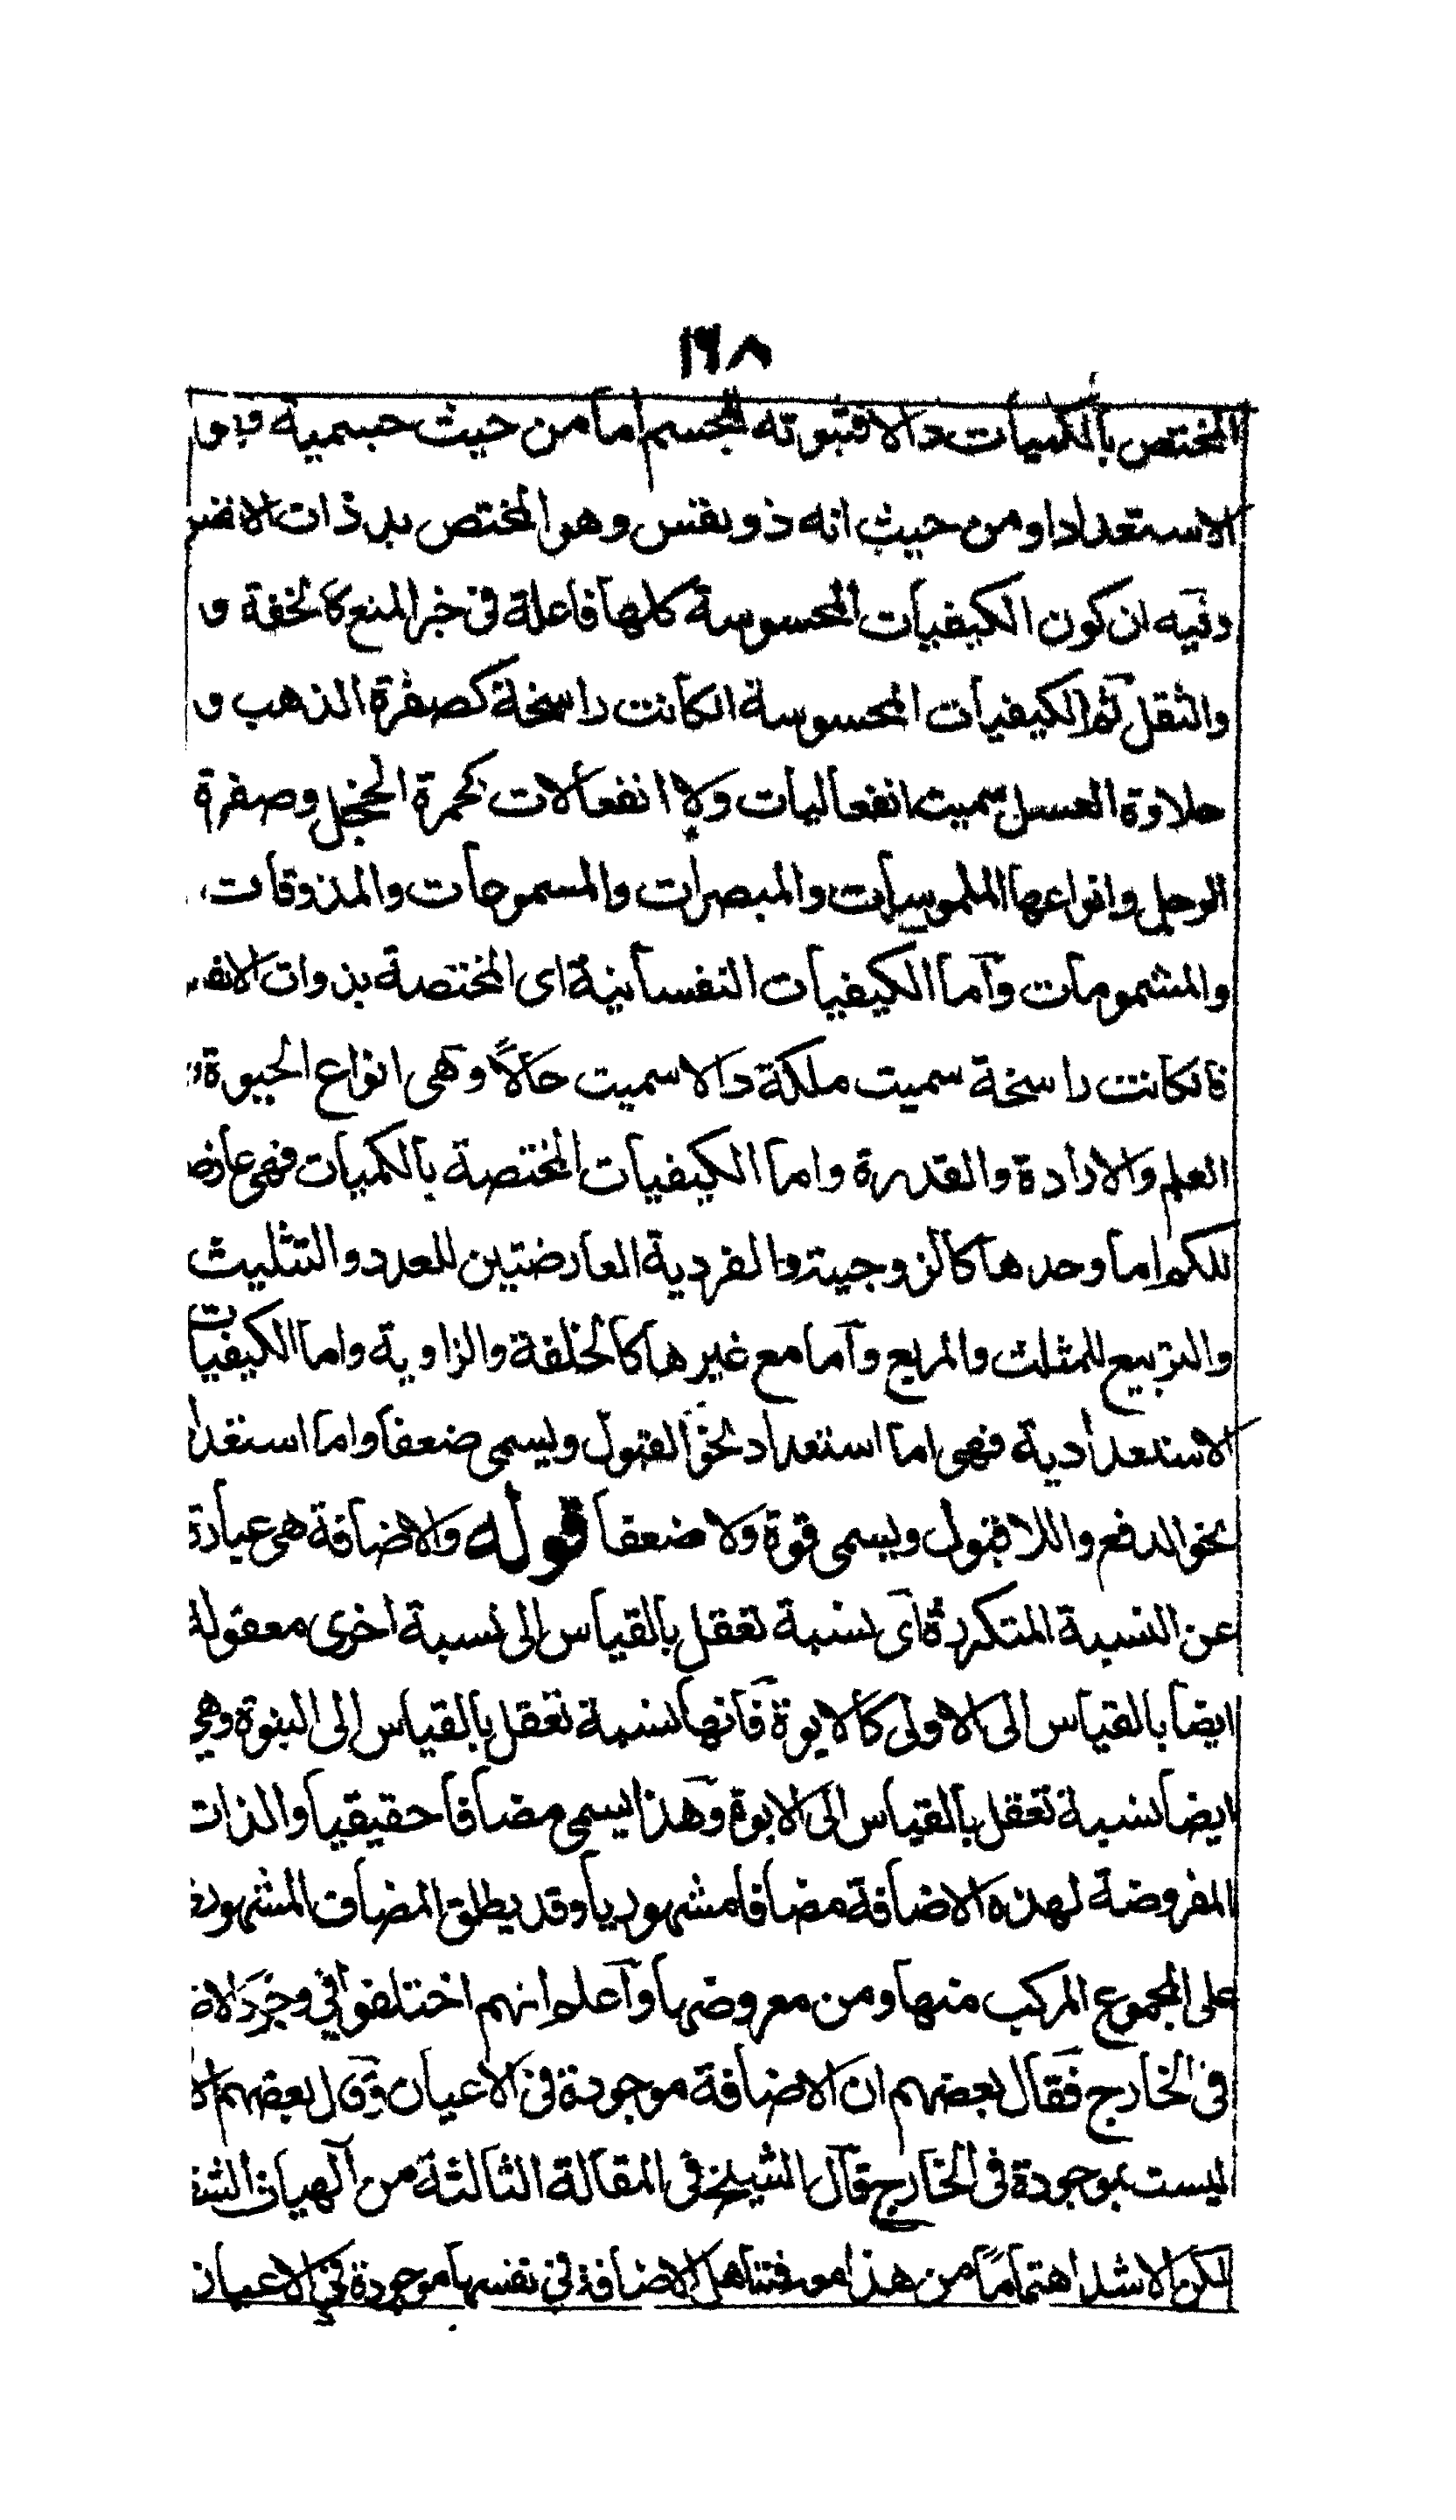 ١٦٨
المختص بالكميات والا فثبوته للجسم اما من حيث جسمية وهو
الاستعداد او من حيث انه ذو نفس وهو المختص بذ ذات الانفس
وفيه ان كون الكيفيات المحسوسة كلها فاعلة في خبر المنع كالخفة و
والثقل ثم الكيفيات المحسوسة انكانت راسخة كصفرة الذهب و
حلاوة العسل سميت انفعاليات ولا انفعالات كحمرة الخجل وصفرة
الوجل وانواعها الملموسات والمبصرات والمسموعات والمذوقات
والمشمومات وآما الكيفيات النفسانية اى المختصة بذوات الانفس
فانكانت راسخة سميت ملكة والا سميت حالاً وهى انواع الحيوة
العلم والارادة والقدرة واما الكيفيات المختصة بالكميات فهى عارضة
للكم اما وحدها كالزوجية والفردية العارضتين للعدد والتثليث
والتربيع للمثلث والمربع وآما مع غيرها كالخلقة والزاوية واما الكيفيات
الاستعدادية فهى اما استعداد نحو القبول ويسمى ضعفا واما استعداد
نحو الدفع واللا قبول ويسمى قوة ولا ضعفا قوله والاضافة هى عبارة
عن النسبة المتكررة آى نسبة تعقل بالقياس الى نسبة اخرى معقولة
ايضا بالقياس الى الاولى كالابوة فآنها نسبة تعقل بالقياس الى البنوة وهى
ايضا نسبة تعقل بالقياس الى الابوة وهذا يسمى مضافا حقيقيا والذات
المفروضة لهذه الاضافة مضافا مشهوريا وقد يطلق المضاف المشهورى
على المجموع المركب منها ومن معروضها وآعلم انهم اختلفوا في وجود الاضافة
فى الخارج فقال بعضهم ان الاضافة موجودة فى الاعيان وقال بعضهم
ليست بموجودة فى الخارج قال الشيخ فى المقالة الثالثة من آلهيات الشفا
لكن الاشد اهتماماً من هذا معرفتنا هل الاضافة فى نفسها موجودة فى الاعيان